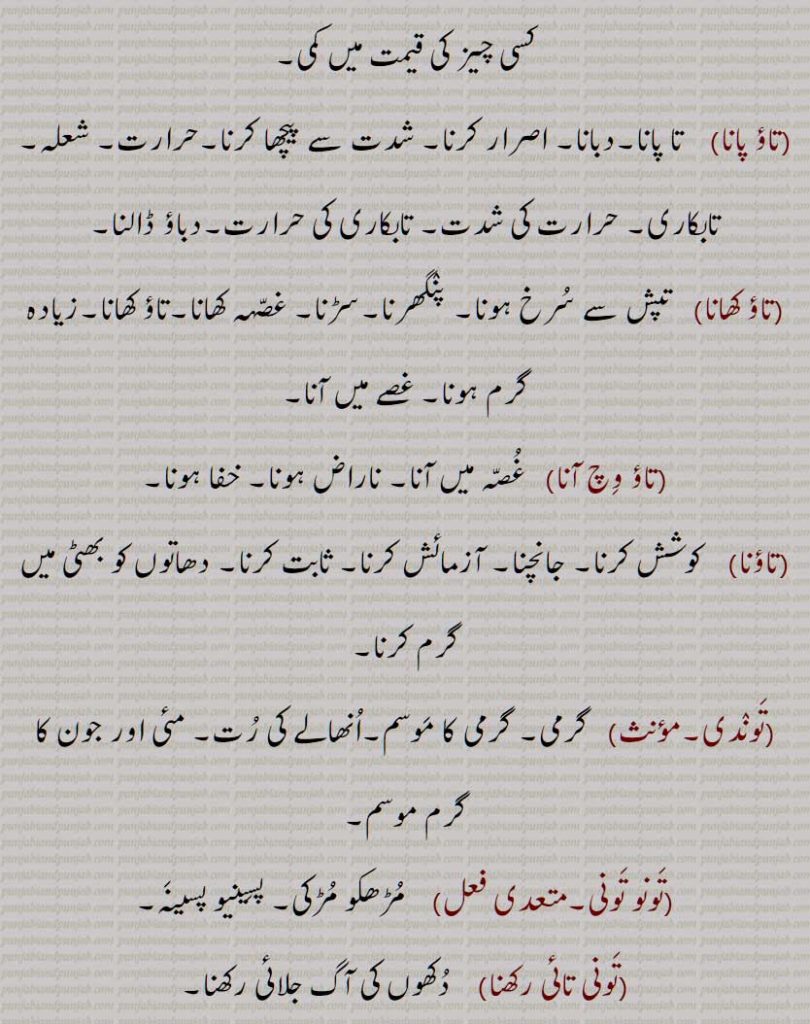 کسی چیز کی قیمت میں کمی۔
(تاؤ پانا) تا پانا۔دبانا۔ اصرار کرنا۔ شدت سے پیچھا کرنا۔حرارت۔ شعلہ۔
تابکاری۔ حرارت کی شدت۔ تابکاری کی حرارت۔دباؤ ڈالنا۔
(تاؤ کھانا) تپش سے سُرخ ہونا۔ پنگھرنا۔سڑنا۔ غصّہہ کھانا۔تاؤ کھانا۔زیادہ
گرم ہونا۔ غصے میں آنا۔
(تاؤ وِچ آنا) غُصّہ میں آنا۔ ناراض ہونا۔ خفا ہونا۔
(تاؤنا) کوشش کرنا۔ جانچنا۔ آزمائش کرنا۔ ثابت کرنا۔ دھاتوں کو بھٹی میں
گرم کرنا۔
(تَوندی۔مؤنث) گرمی۔ گرمی کا مَوسم۔اُنھالے کی رُت۔ مئی اور جون کا
گرم موسم۔
(تَونو تَونی۔متعدی فعل) مُڑھکو مُڑکی۔ پسینیو پسینَہ۔
(تَونی تائی رکھنا) دُکھوں کی آگ جلائی رکھنا۔